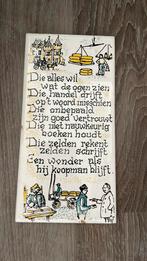 Die alles wil
wat de ogen zien
Die handel drijft
op't woord misschien
Die onbepaald
zijn goed vertrouwt
Die niet nauwkeurig
boeken houdt
Die zelden rekent
zelden schrijft
Een wonder als
hij koopman blijft